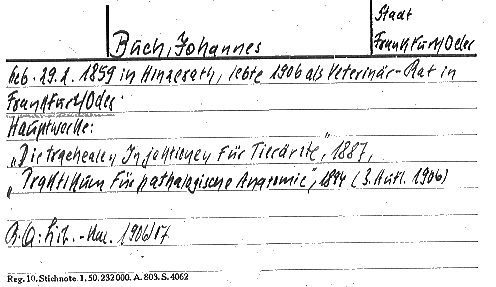 Stadt
Buch, Johannes
Frankfurt/Oder
geb. 29.1.1859 in Hinzerath, lebte 1906 als Veterinär-Rat in
Frankfurt/Oder.
Hauptwerke:
„Die trachealen Injektionen für Tierärzte", 1887,
„Praktikum für pathologische Anatomie", 1894 (3. Aufl. 1906)
Lit. 1906/07
Reg. 10. Stichnote. 1, 50. 232000. A. 803. S. 4062